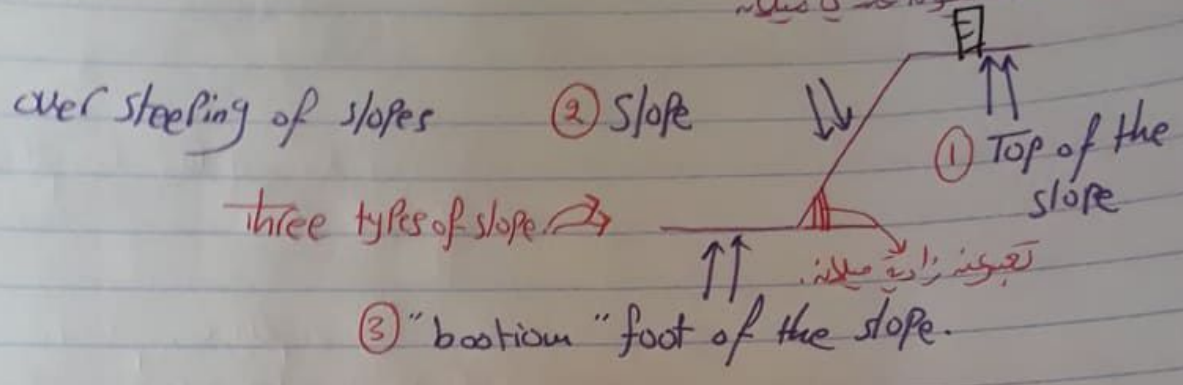 over steeping of slopes
② Slope
① Top of the
slope
three types of slope
زاوية ميلانه
③ "bootiom" foot of the slope.